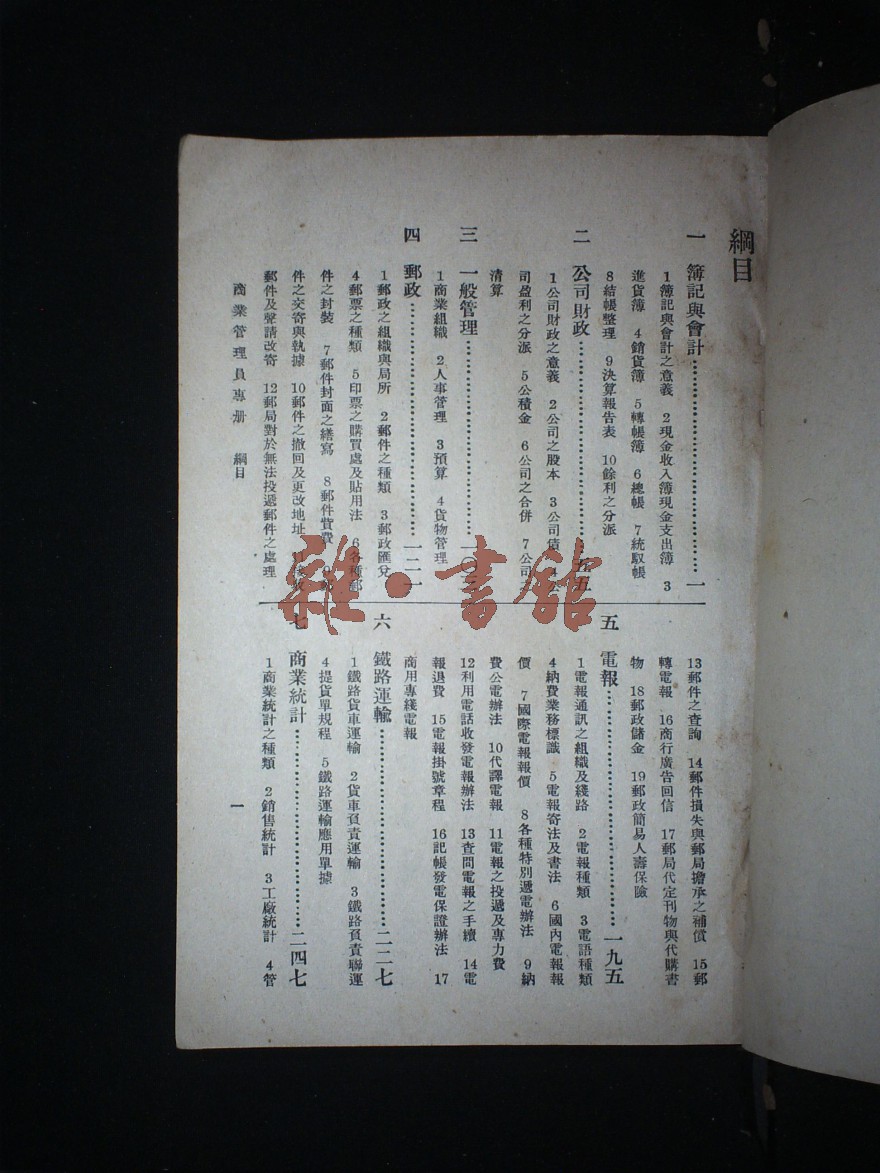 綱目
一 簿記與會計……一
1簿記與會計之意義 2現金收入簿現金支出簿 3
進貨簿 4銷貨簿 5轉帳簿 6總帳 7統馭帳
8結帳整理 9決算報告表 10餘利之分派
二 公司財政……五五
1公司財政之意義 2公司之股本 3公司債 公
司盈利之分派 5公積金 6公司之合併 7公司
清算
三 一般管理……一
1商業組織 2人事管理 3預算 4貨物管理
四 郵政……一二一
1郵政之組織與局所 2郵件之種類 3郵政匯兌
4郵票之種類 5印票之購買處及貼用法 6各種郵
件之封裝 7郵件封面之繕寫 8郵件資費
件之交寄與執據 10郵件之撤回及更改地址
郵件及聲請改寄 12郵局對於無法投遞郵件之處理
13郵件之查詢 14郵件損失與郵局擔承之補償 15郵
轉電報 16商行廣告回信 17郵局代定刊物與代購書
物 18郵政儲金 19郵政簡易人壽保險
五 電報……一九五
1電報通訊之組織及綫路 2電報種類 3電語種類
4納費業務標識 5電報寄法及書法 6國內電報報
價 7國際電報報價 8各種特別遞電辦法 9納
費公電辦法 10代譯電報 11電報之投遞及專力費
12利用電話收發電報辦法 13查問電報之手續 14電
報退費 15電報掛號章程 16記帳發電保證辦法 17
商用專綫電報
六 鐵路運輸……二二七
1鐵路貨車運輸 2貨車負責運輸 3鐵路負責聯運
4提貨單規程 5鐵路運輸應用單據
七 商業統計……二四七
1商業統計之種類 2銷售統計 3工廠統計 4管
商業管理員專册 綱目
一
雜·書館